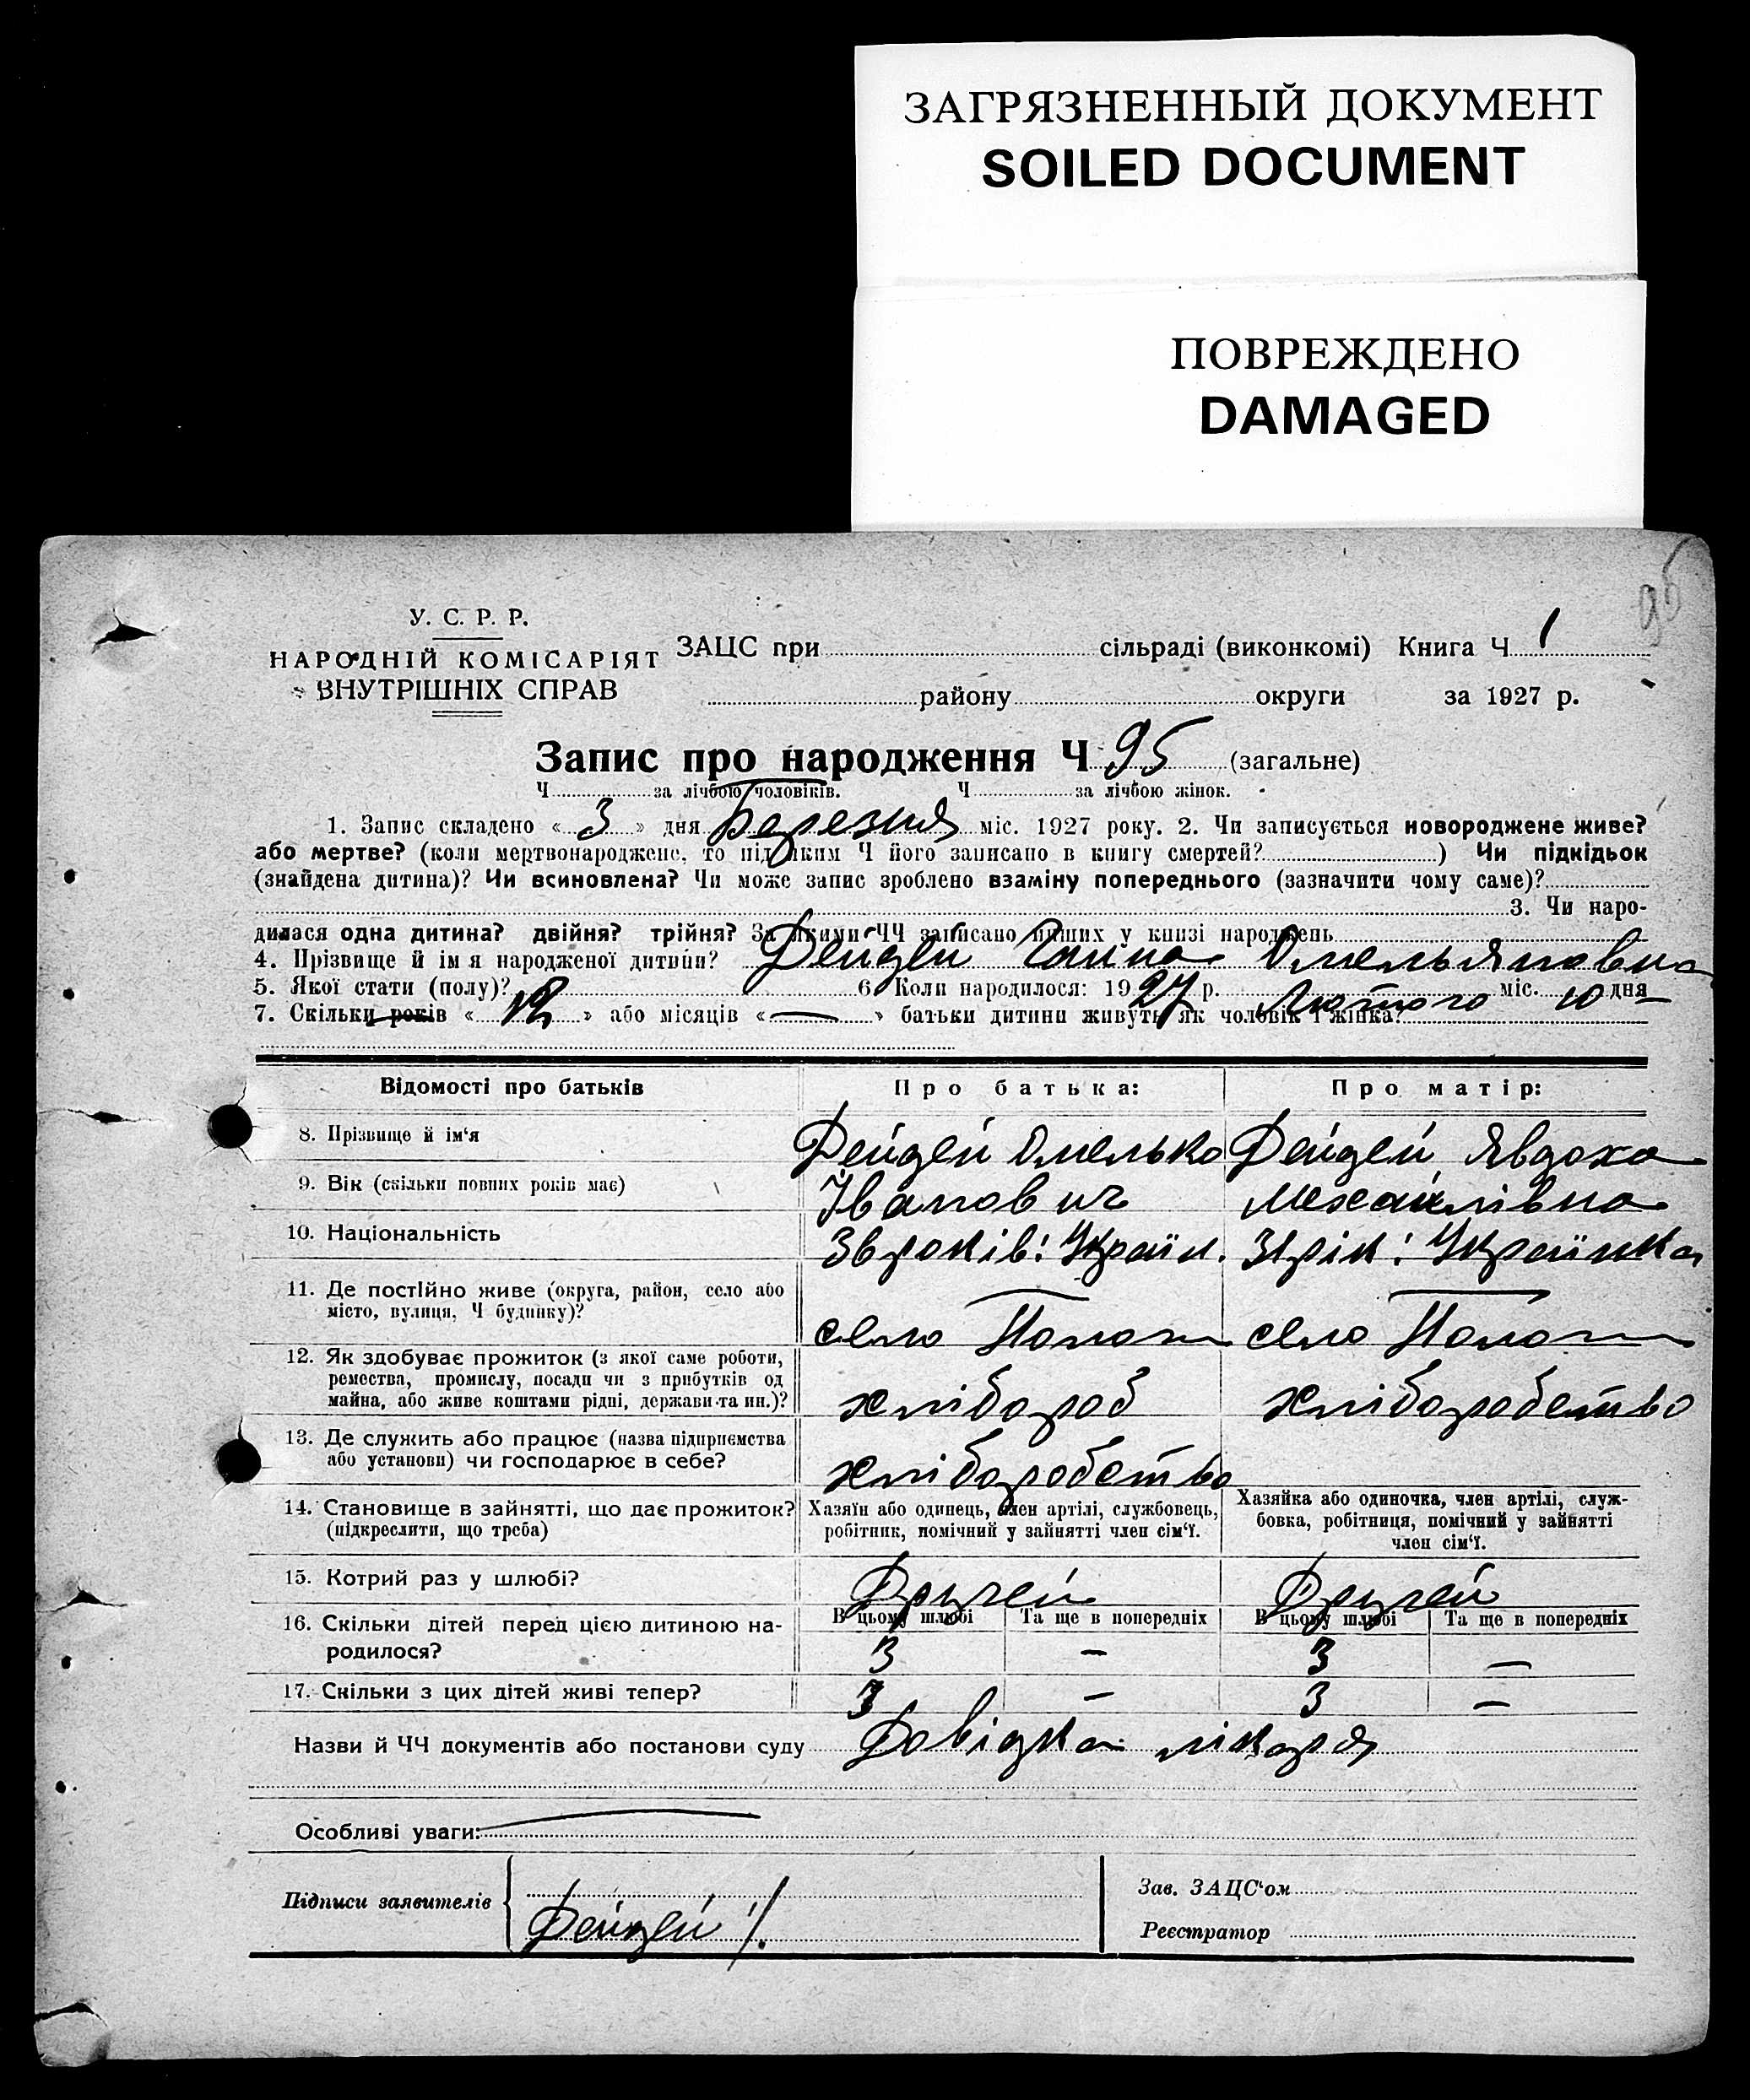 ЗАГРЯЗНЕННЫЙ ДОКУМЕНТ
SOILED DOCUMENT
ПОВРЕЖДЕНО
DAMAGED
95
У. С. Р. Р.
НАРОДНІЙ КОМІСАРІЯТ
ВНУТРІШНІХ СПРАВ
ЗАЦС при сільраді (виконкомі) Книга Ч 1
району округи за 1927 р.
Запис про народження Ч 95 (загальне)
Ч за лічбою чоловіків. Ч за лічбою жінок.
1. Запис складено « 3 » дня Березня міс. 1927 року. 2. Чи записується новороджене живе?
або мертве? (коли мертвонароджене, то під яким Ч його записано в книгу смертей? ) Чи підкідьок
(знайдена дитина)? Чи всиновлена? Чи може запис зроблено взаміну попереднього (зазначити чому саме)?
3. Чи наро-
дилася одна дитина? двійня? трійня? За якими ЧЧ записано инших у книзі народжень
4. Прізвище й ім я народженої дитини? Дейдей Ганна Омельяновна
5. Якої стати (полу)? 6. Коли народилося: 1927 р. Лютого міс. 10 дня
7. Скільки років « » або місяців « — » батьки дитини живуть як чоловік і жінка?
Відомості про батьків Про батька: Про матір:
8. Прізвище й ім'я Дейдей Омелько Дейдей Явдоха
9. Вік (скільки повних років має) Іванович Михайлівна
10. Національність років: Україн. рік: Українка
11. Де постійно живе (округа, район, село або
місто, вулиця, Ч будинку)? село село
12. Як здобуває прожиток (з якої саме роботи,
ремества, промислу, посади чи з прибутків од
майна, або живе коштами рідні, держави та ин.)? хлібороб хліборобство
13. Де служить або працює (назва підприємства
або установи) чи господарює в себе? хліборобство
14. Становище в зайнятті, що дає прожиток?
(підкреслити, що треба)
Хазяїн або одинець, член артілі, службовець,
робітник, помічний у зайнятті член сім'ї.
Хазяйка або одиночка, член артілі, служ-
бовка, робітниця, помічний у зайнятті
член сім'ї.
15. Котрий раз у шлюбі? Другей Другей
В цьому шлюбі Та ще в попередніх В цьому шлюбі Та ще в попередніх
16. Скільки дітей перед цією дитиною на-
родилося? 3 — 3 —
17. Скільки з цих дітей живі тепер? 3 — 3 —
Назви й ЧЧ документів або постанови суду Довідка лікаря
Особливі уваги:
Підписи заявителів Дейдей
Зав. ЗАЦС'ом
Реєстратор